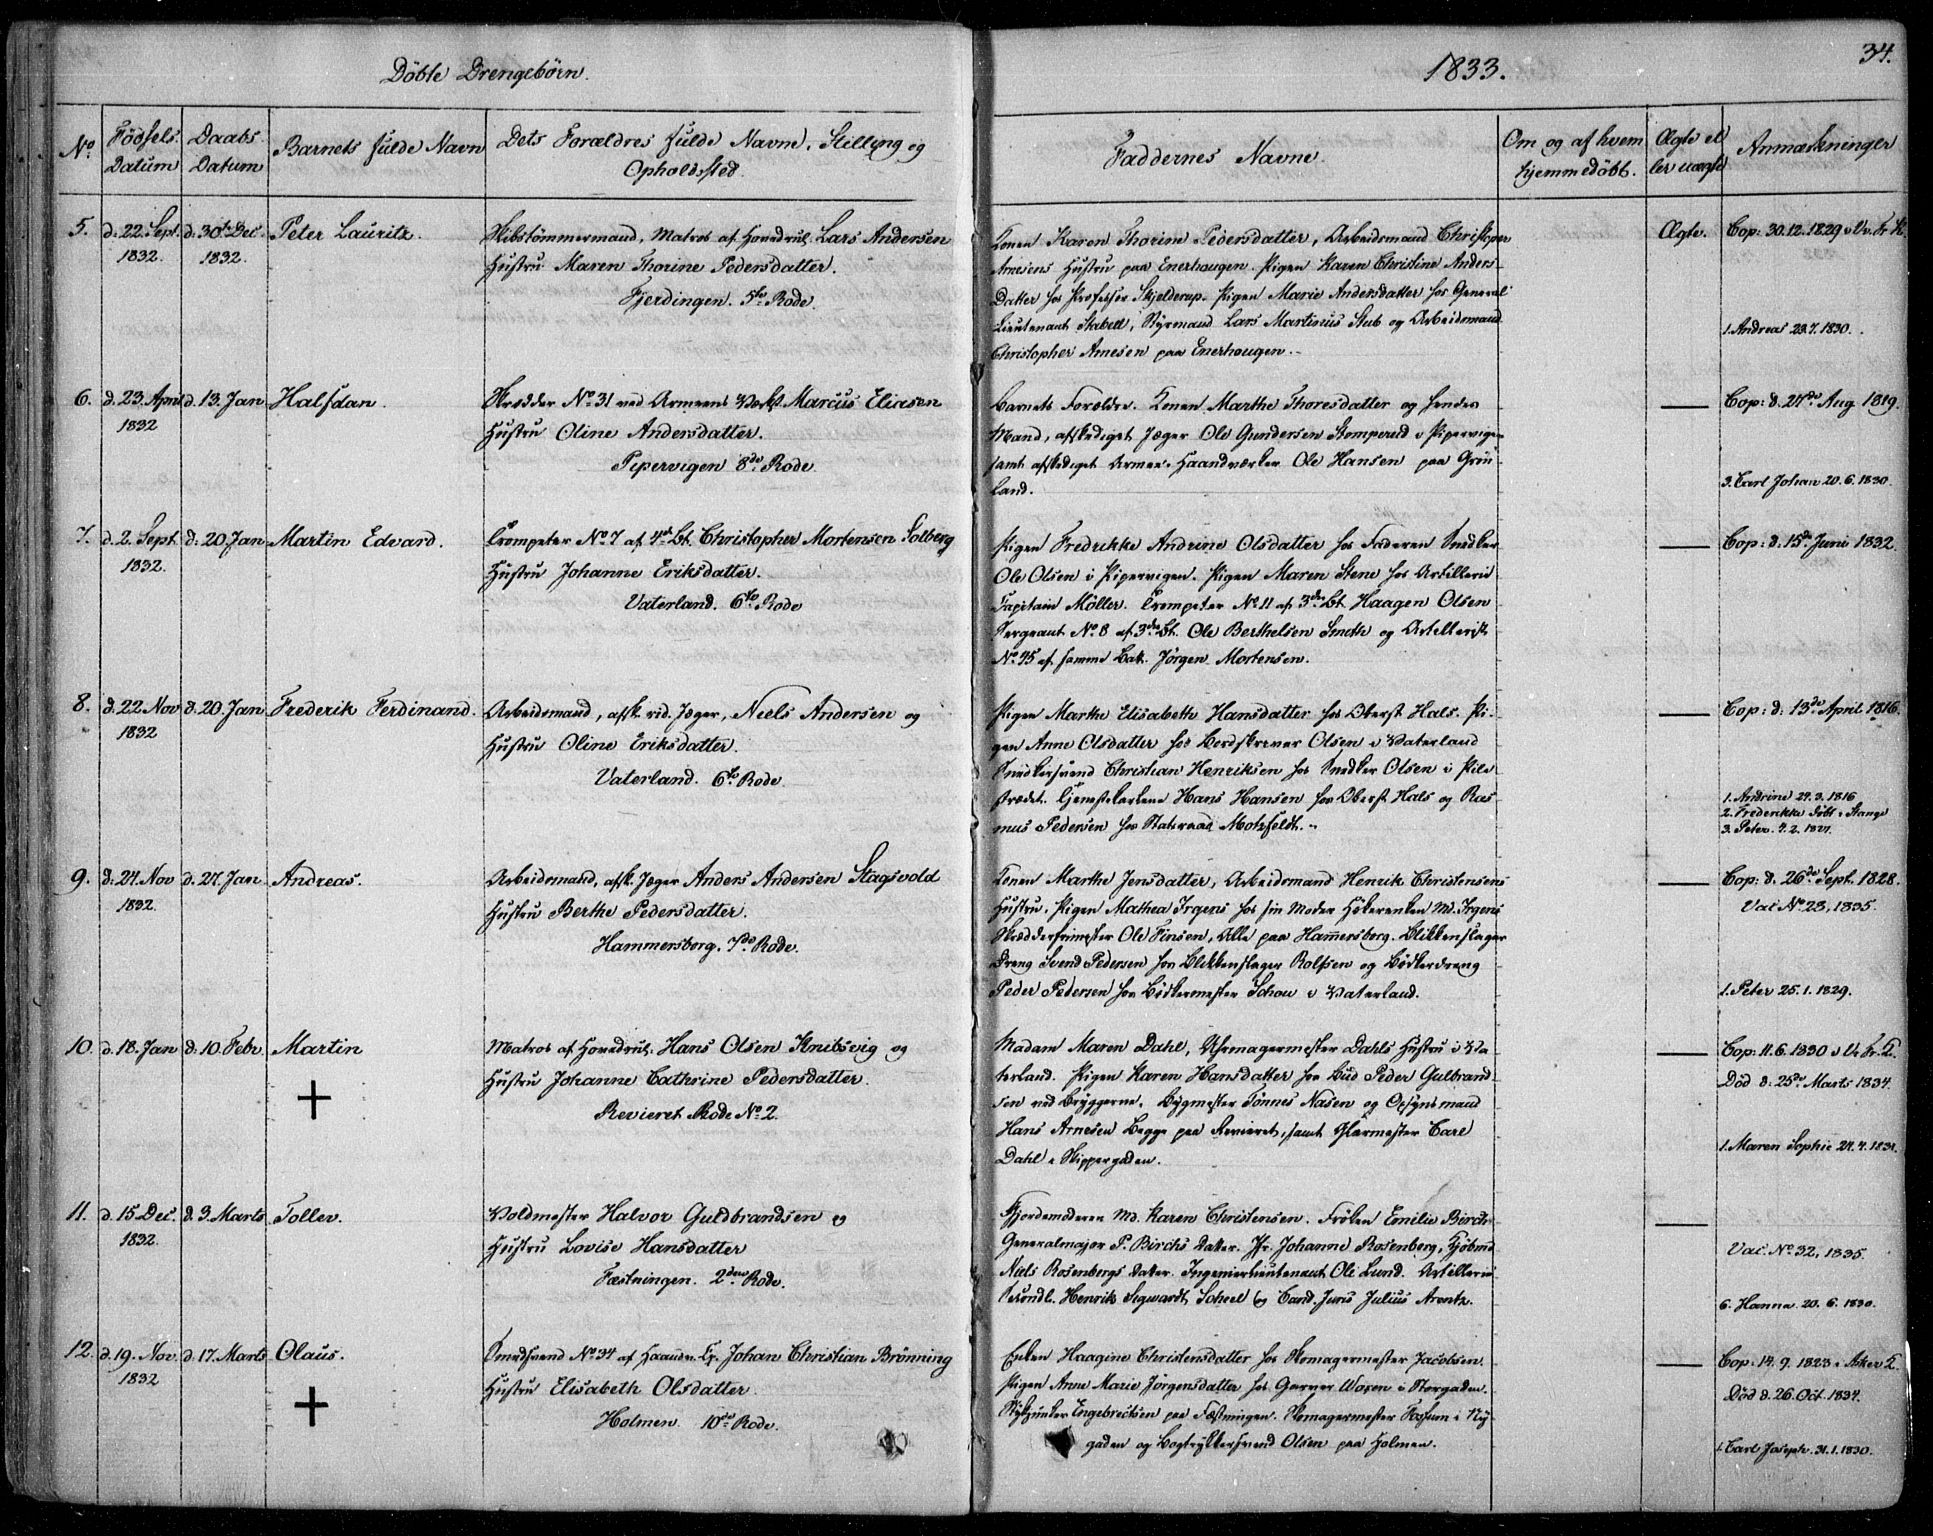 Döbte Drengebörn.
1833.
34.
No.
Födsels Datum
Daabs Datum
Barnets fulde Navn
Dets Forældres fulde Navne, Stilling og Opholdssted.
Faddernes Navne.
Om og af hvem hjemmedöbt.
Ægte eller uægte
Anmærkninger
5. d. 22. Sept. 1832. d. 30te Dec. 1832. Peter Lauritz.
Skibstömmermand, Matros af Hovedrul. Lars Andersen
Hustru Maren Thorine Pedersdatter.
Fjerdingen. 5te Rode
Konen Karen Thorine Pedersdatter, Arbeidsmand Christopher
Arnesens Hustru paa Enerhaugen. Pigen Karen Christine Anders
Datter hos Professor Skjelderup. Pigen Marie Andersdatter hos General
Lieutenant Stabell, Styrmand Lars Martinus Stub og Arbeidsmand
Christopher Arnesen paa Enerhaugen.
Ægte.
Cop: 30.12.1829 i Vr. Fr. K.
1. Andreas 23.7.1830.
6. d. 23. April 1832 d. 13. Jan Halfdan.
Skredder No 31 ved Armeens Verkst. Marcus Eliasen
Hustru Oline Andersdatter.
Pipervigen 8de Rode
Barnets Forældre. Konen Marthe Thoresdatter og hendes
Mand, afskediget Jæger Ole Gundersen Stompered i Pipervigen
samt afskediget Armee-Haandværker Ole Hansen paa Grön
land.
Cop: d. 27de Aug 1819.
3. Carl Johan 20.6.1830.
7. d. 2. Sept. 1832. d. 20. Jan Martin Edvard.
Trompeter No 7 af 4de Bt. Christopher Mortensen Solberg
Hustru Johanne Eriksdatter.
Vaterland. 6te Rode
Pigen Fredrikke Andrine Olsdatter hos Faderen Snedker
Ole Olsen i Pipervigen. Pigen Maren Stene hos Artillerie
Capitain Möller. Trompeter No 11 af 3die Bt. Haagen Olsen
Sergeant No 8 af 3die Bt. Ole Berthelsen Smeth og Artellerist
No 45 af samme Bat. Jörgen Mortensen.
Cop: d. 15de Juni 1832.
8. d. 22 Nov 1832 d. 20. Jan Frederik Ferdinand.
Arbeidsmand, afsk. rid. Jæger, Niels Andersen og
Hustru Oline Eriksdatter.
Vaterland. 6te Rode.
Pigen Marthe Elisabeth Hansdatter hos Oberst Hals. Pi-
gen Anne Olsdatter hos Bordskriver Olsen i Vaterland
Snedkersvend Christian Henriksen hos Snedker Olsen i Pile
strædet. Tjenestekarlene Hans Hansen hos Oberst Hals og Ras
mus Pedersen hos Statsraad Motzfeldt.
Cop: d. 13de April 1816.
1. Andrine 24.3.1816
2. Frederikke Född i Stange
3. Peter. 4.2.1821.
9. d. 24. Nov 1832. d. 27. Jan Andreas.
Arbeidsmand, afsk. Jæger Anders Andersen Stagsvold
Hustru Berthe Pedersdatter.
Hammersborg. 7de Rode.
Konen Marthe Jensdatter, Arbeidsmand Henrik Christensens
Hustru. Pigen Mathea Irgens hos sin Moder Hökerenken Md. Irgens
Skræddermester Ole Finsen, Alle paa Hammersborg. Blikkenslager
Dreng Svend Pedersen hos Blikkenslager Rolfsen og Bödkerdreng
Peder Pedersen hos Bödkermester Schou i Vaterland.
Cop: d. 26de Sept. 1828.
Vac No 28, 1835.
1. Peter 25.1.1829.
10. d. 18. Jan d. 10. Febr. Martin
+
Matros af Hovedrul. Hans Olsen Knibsvig og
Hustru Johanne Cathrine Pedersdatter.
Revieret Rode No 2.
Madam Maren Dahl, Uhrmagermester Dahls Hustru i Va
terland. Pigen Karen Hansdatter hos Bud Peder Gulbrand
sen ved Bryggerne. Bygmester Tönnes Nasen og Opsynsmand
Hans Arnesen Begge paa Revieret, samt Glarmester Carl
Dahl i Skippergaden.
Cop: 11.6.1830 i Vr. Fr. K.
Död d. 25de Marts 1834.
1. Maren Sophie 24.4.1831.
11. d. 15 Dec. 1832. d. 3. Marts Tollev.
Voldmester Halvor Guldbrandsen og
Hustru Lovise Hansdatter
Fæstningen. 2den Rode.
Gjordemoderen Md. Karen Christensen. Fröken Emilie Birch
Generalmajor P. Birchs Datter. Jfr. Johanne Rosenberg, Kjöbmd
Niels Rosenbergs Datter. Ingenierlieutenant Ole Lund. Artillerie
Secondl. Henrik Segwardt Scheel og Cand. Juris Julius Arentz.
Vac. No 32, 1835.
6. Hanna 20.6.1830.
12. d. 19. Nov. 1832 d. 17. Marts Olaus.
+
Smedsvend No 34 af Haandv. Cp. Johan Christian Brönning
Hustru Elisabeth Olsdatter.
Holmen. 10de Rode.
Enken Haagine Christensdatter hos Skomagermester Jacobsen.
Pigen Anne Marie Jörgensdatter hos Garver Woxen i Storgaden.
Stykjunker Engebretsen paa Fæstningen. Skomagermester Fossum i Ny-
gaden og Bogtrykkersvend Olsen paa Holmen.
Cop: 14.9.1823 i Asker K.
Död d. 26. Oct. 1834.
1. Carl Joseph. 31.1.1830.